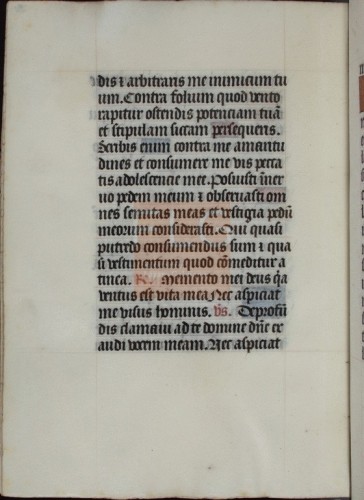 dis ⁊ arbitraris me inimicum tu
um. Contra folium quod vento
rapitur ostendis potenciam tuā
et stipulam siccam persequeris.
Scribis enim contra me amaritu
dines et consumere me vis pecca
tis adolescencie mee. Posuisti ī ner
uo pedem meum ⁊ obseruasti om
nes semitas meas et vestigia pedū
meorum considerasti. Qui quasi
putredo consumendus sum ⁊ qua
si vestimentum quod cōmeditur a
tinea. R. Memento mei deus q̄a
ventus est vita mea Nec aspiciat
me visus hominis. vs. De profū
dis clamaui ad te domine dn̄e ex
audi vocem meam. Nec aspiciat